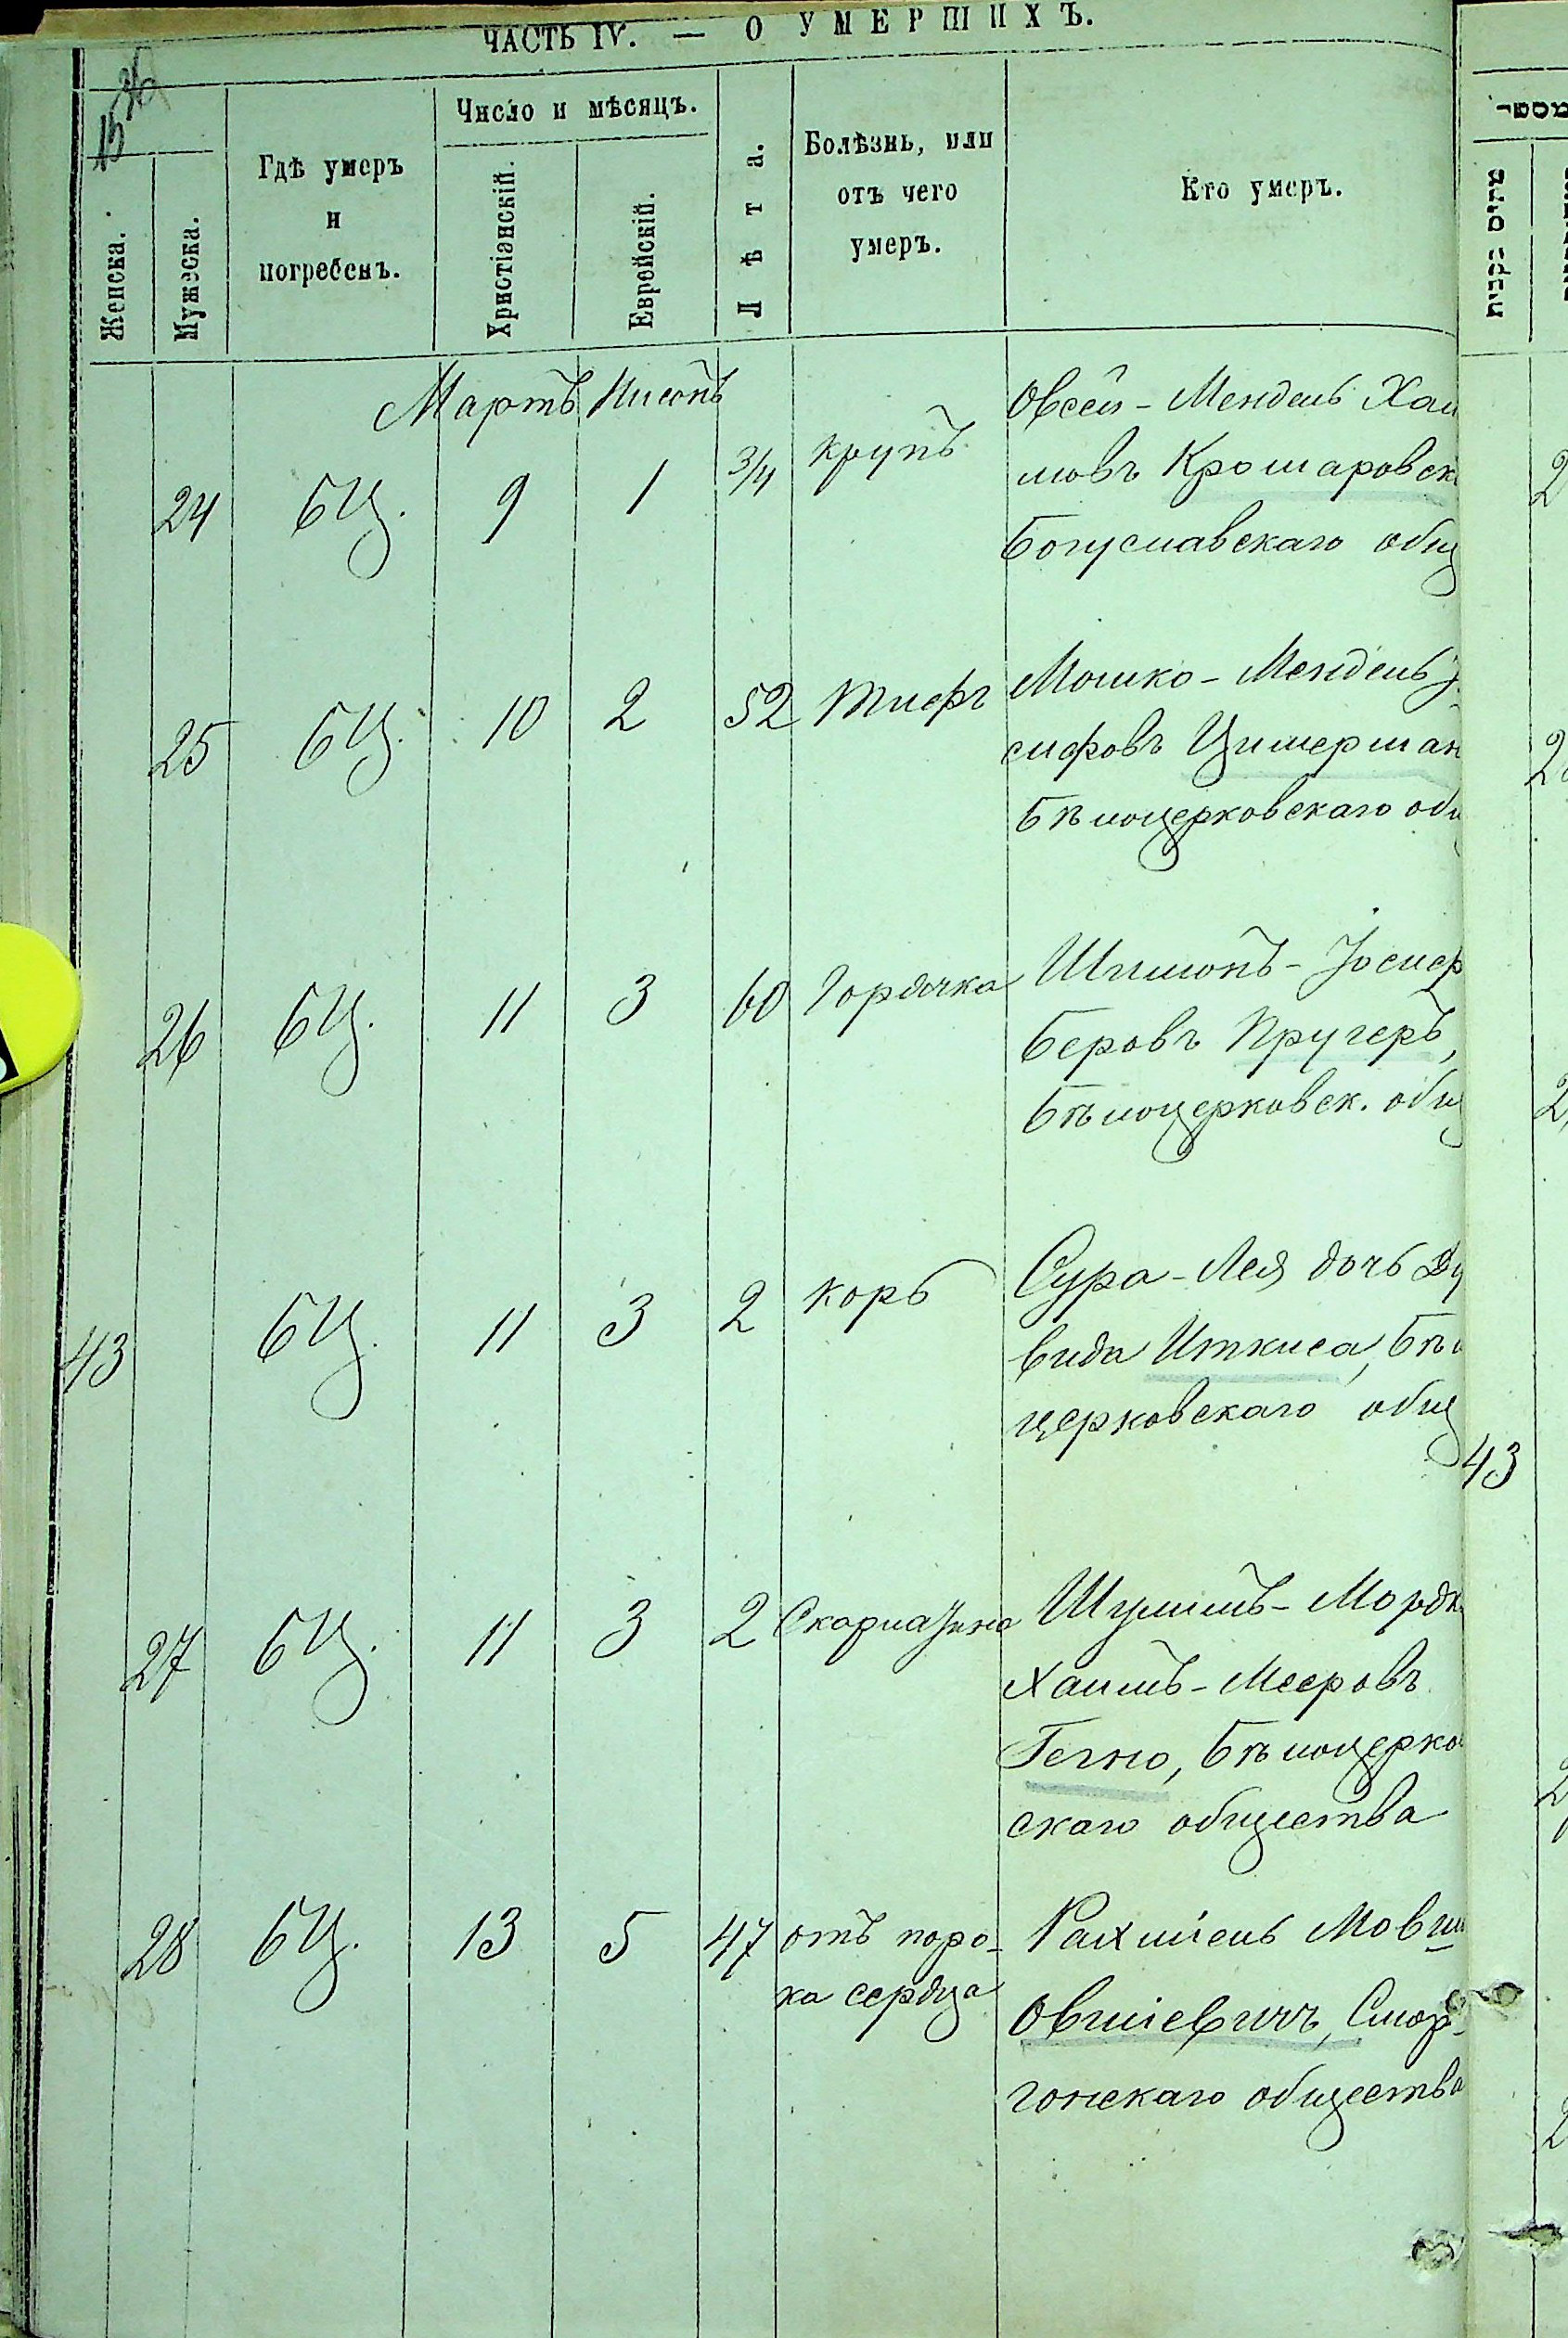 ЧАСТЬ IV. — О УМЕРШИХЪ.
Женска.
Мужеска.
Гдѣ умеръ
и
погребенъ.
Число и мѣсяцъ.
Христіанскій.
Еврейскій.
Лѣта.
Болѣзнь, или
отъ чего
умеръ.
Кто умеръ.
מספר
Мартъ Нисонъ
24 БЦ. 9 1 3/4 крупъ
Овсей-Мендель Хаи
мовъ Крошаровск
Богуславскаго общ
25 БЦ. 10 2 52 тифъ
Мошко-Мендель І
сифовъ Цимерман
Бѣлоцерковскаго общ
26 БЦ. 11 3 60 Горячка
Шимонъ-Іосиф
Беровъ Пругеръ,
Бѣлоцерковск. общ
43 БЦ. 11 3 2 корь
Сура-Лея дочь Ду
вида Иткиса, Бѣл
церковскаго общ
43
27 БЦ. 11 3 2 Скарлатина
Шулимъ-Мордк
Хаимъ-Мееровъ
Гечно, Бѣлоцерков
скаго общества
28 БЦ. 13 5 47 отъ поро-
ка сердца
Рахміель Мовш
Овшіевичъ, Смор-
гонскаго общества